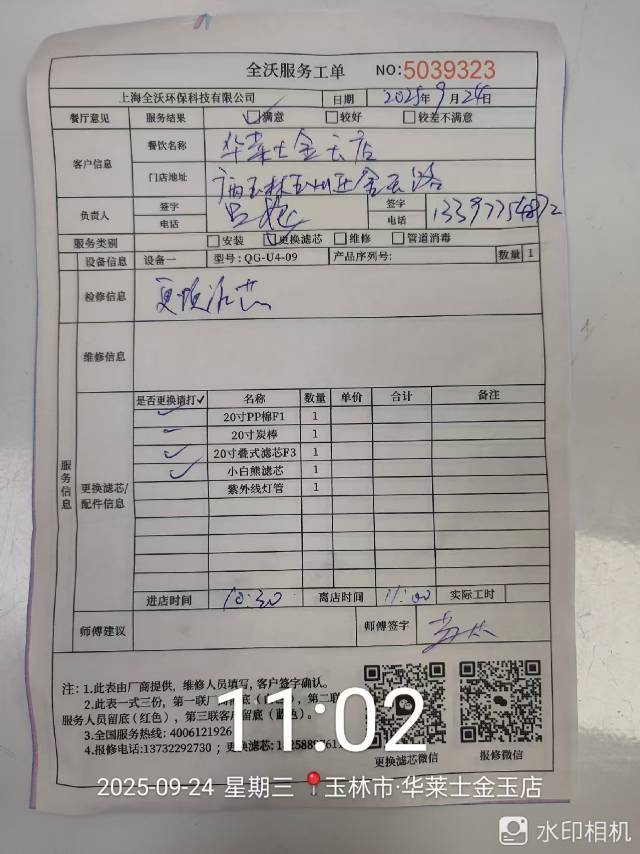 全沃服务工单 NO:5039323
上海全沃环保科技有限公司 日期 2025年9月24日
餐厅意见 服务结果 满意 较好 较差不满意
客户信息 餐饮名称 华莱士金玉店
门店地址 广西玉林玉州区金玉路
负责人 签字 签字
电话 电话
服务类别 安装 更换滤芯 维修 管道消毒
设备信息 设备一 型号:QG-U4-09 产品序列号: 数量 1
检修信息 更换滤芯
维修信息
服务信息
更换滤芯/配件信息
是否更换请打✓ 名称 数量 单价 合计 备注
✓ 20寸PP棉F1 1
✓ 20寸炭棒 1
✓ 20寸叠式滤芯F3 1
✓ 小白熊滤芯 1
紫外线灯管 1
进店时间 10:30 离店时间 11:00 实际工时
师傅建议 师傅签字
注:1.此表由厂商提供,维修人员填写,客户签字确认。
2.此表一式三份,第一联厂商留底(色),第二联
服务人员留底(红色),第三联客户留底(蓝色)。
3.全国服务热线:4006121926
4.报修电话:13732292730;更换滤芯:
更换滤芯微信 报修微信
11:02
2025-09-24 星期三 玉林市·华莱士金玉店
水印相机